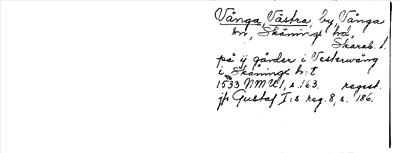 Vånga, Västra, by, Vånga
sn, Skånings hd,
Skarab. l.
på ij gårder i Vesterwång
i Skånings h:t
1533 NMU1, s. 163. regest.
jfr Gustaf I:s reg. 8, s. 186.